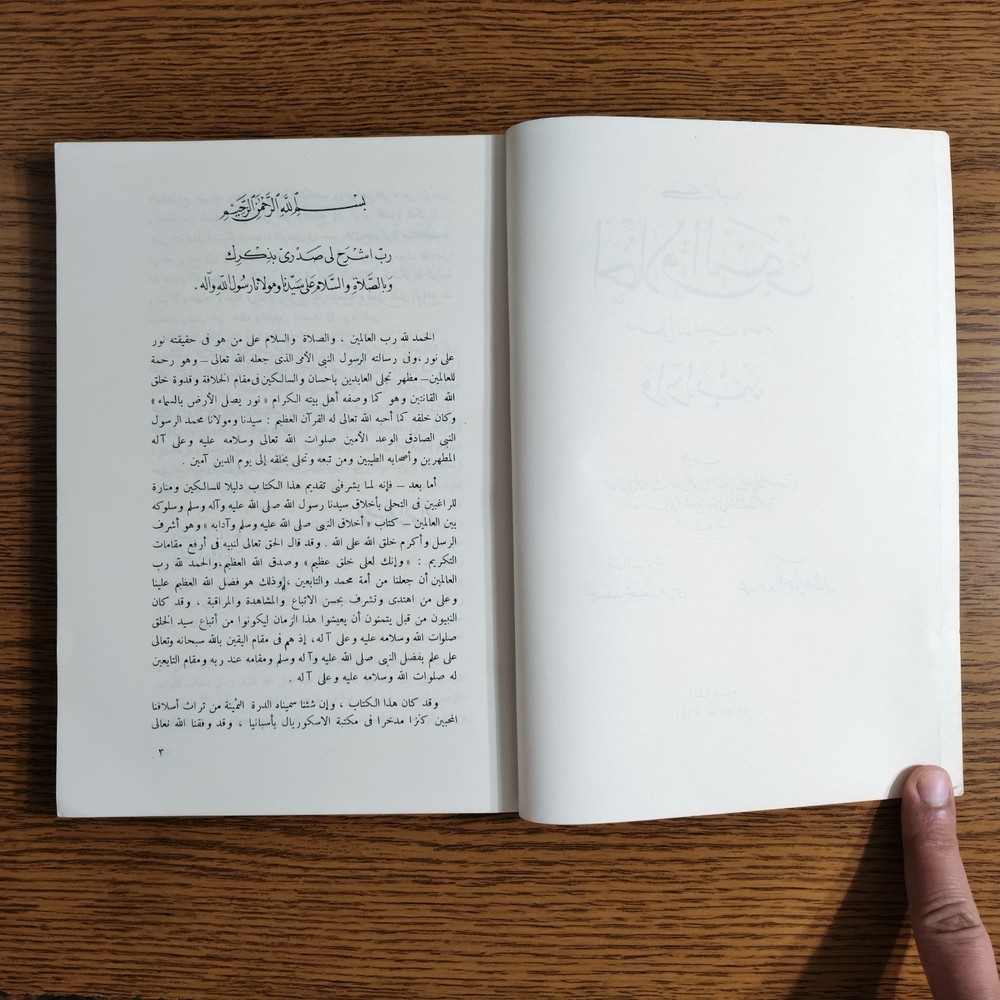 بسم الله الرحمن الرحيم
رب اشرح لى صدرى بذكرك
وبالصلاة والسلام على سيدنا ومولانا رسول الله وآله .
الحمد لله رب العالمين ، والصلاة والسلام على من هو فى حقيقته نور
على نور ، وفى رسالته الرسول النبى الأمى الذى جعله الله تعالى ــ وهو رحمة
للعالمين ــ مظهر تجلى العابدين بإحسان والسالكين فى مقام الخلافة وقدوة خلق
الله القانتين وهو كما وصفه أهل بيته الكرام « نور يصل الأرض بالسماء »
وكان خلقه كما أحبه الله تعالى له القرآن العظيم : سيدنا ومولانا محمد الرسول
النبى الصادق الوعد الأمين صلوات الله تعالى وسلامه عليه وعلى آله
المطهرين وأصحابه الطيبين ومن تبعه وتحلى بخلقه إلى يوم الدين آمين .
أما بعد ــ فإنه لما يشرفنى تقديم هذا الكتاب دليلا للسالكين ومنارة
للراغبين فى التحلى بأخلاق سيدنا رسول الله صلى الله عليه وآله وسلم وسلوكه
بين العالمين ــ كتاب « أخلاق النبى صلى الله عليه وسلم وآدابه » وهو أشرف
الرسل وأكرم خلق الله على الله . وقد قال الحق تعالى لنبيه فى أرفع مقامات
التكريم : « وإنك لعلى خلق عظيم » وصدق الله العظيم ، والحمد لله رب
العالمين أن جعلنا من أمة محمد والتابعين ، وذلك هو فضل الله العظيم علينا
وعلى من اهتدى وتشرف بحسن الاتباع والمشاهدة والمراقبة ، وقد كان
النبيون من قبل يتمنون أن يعيشوا هذا الزمان ليكونوا من أتباع سيد الخلق
صلوات الله وسلامه عليه وعلى آله ، إذ هم فى مقام اليقين بالله سبحانه وتعالى
على علم بفضل النبى صلى الله عليه وآله وسلم ومقامه عند ربه ومقام التابعين
له صلوات الله وسلامه عليه وعلى آله .
وقد كان هذا الكتاب ، وإن شئنا سميناه الدرة الثمينة من تراث أسلافنا
المحبين كنزا مدخرا فى مكتبة الاسكوريال بأسبانيا ، وقد وفقنا الله تعالى
٣